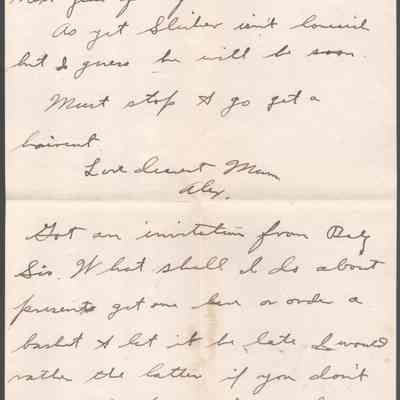 next year
As yet Slicker isn't
but I guess he will be soon.
Must stop & go get a
haircut
Love dearest Mum
Alex.
Got an invitation from Baby
Sis. What shall I do about
present get one here or order a
basket & let it be late I would
rather the latter if you don't